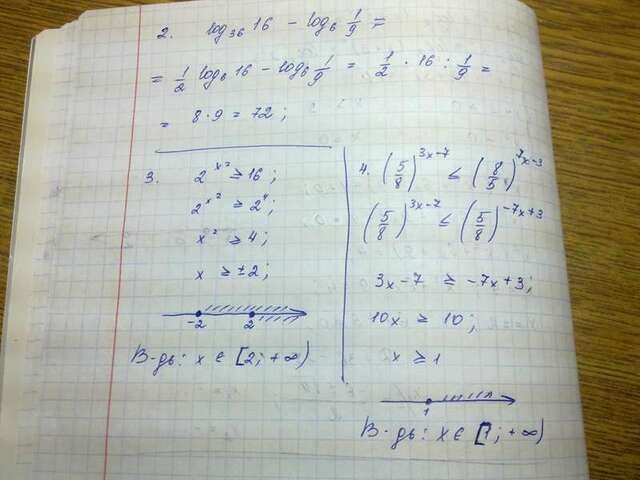 2. log₃₆ 16 - log₆ 1/9 =
= 1/2 log₆ 16 - log₆ 1/9 = 1/2 · 16 : 1/9 =
= 8 · 9 = 72;
3. 2^x² ≥ 16;
2^x² ≥ 2⁴;
x² ≥ 4;
x ≥ ±2;
-2 2
В-дь: x ∈ [2; +∞)
4. (5/8)^3x-7 ≤ (8/5)^7x-3
(5/8)^3x-7 ≤ (5/8)^-7x+3
3x-7 ≥ -7x+3;
10x ≥ 10;
x ≥ 1
1
В-дь: x ∈ [1; +∞)